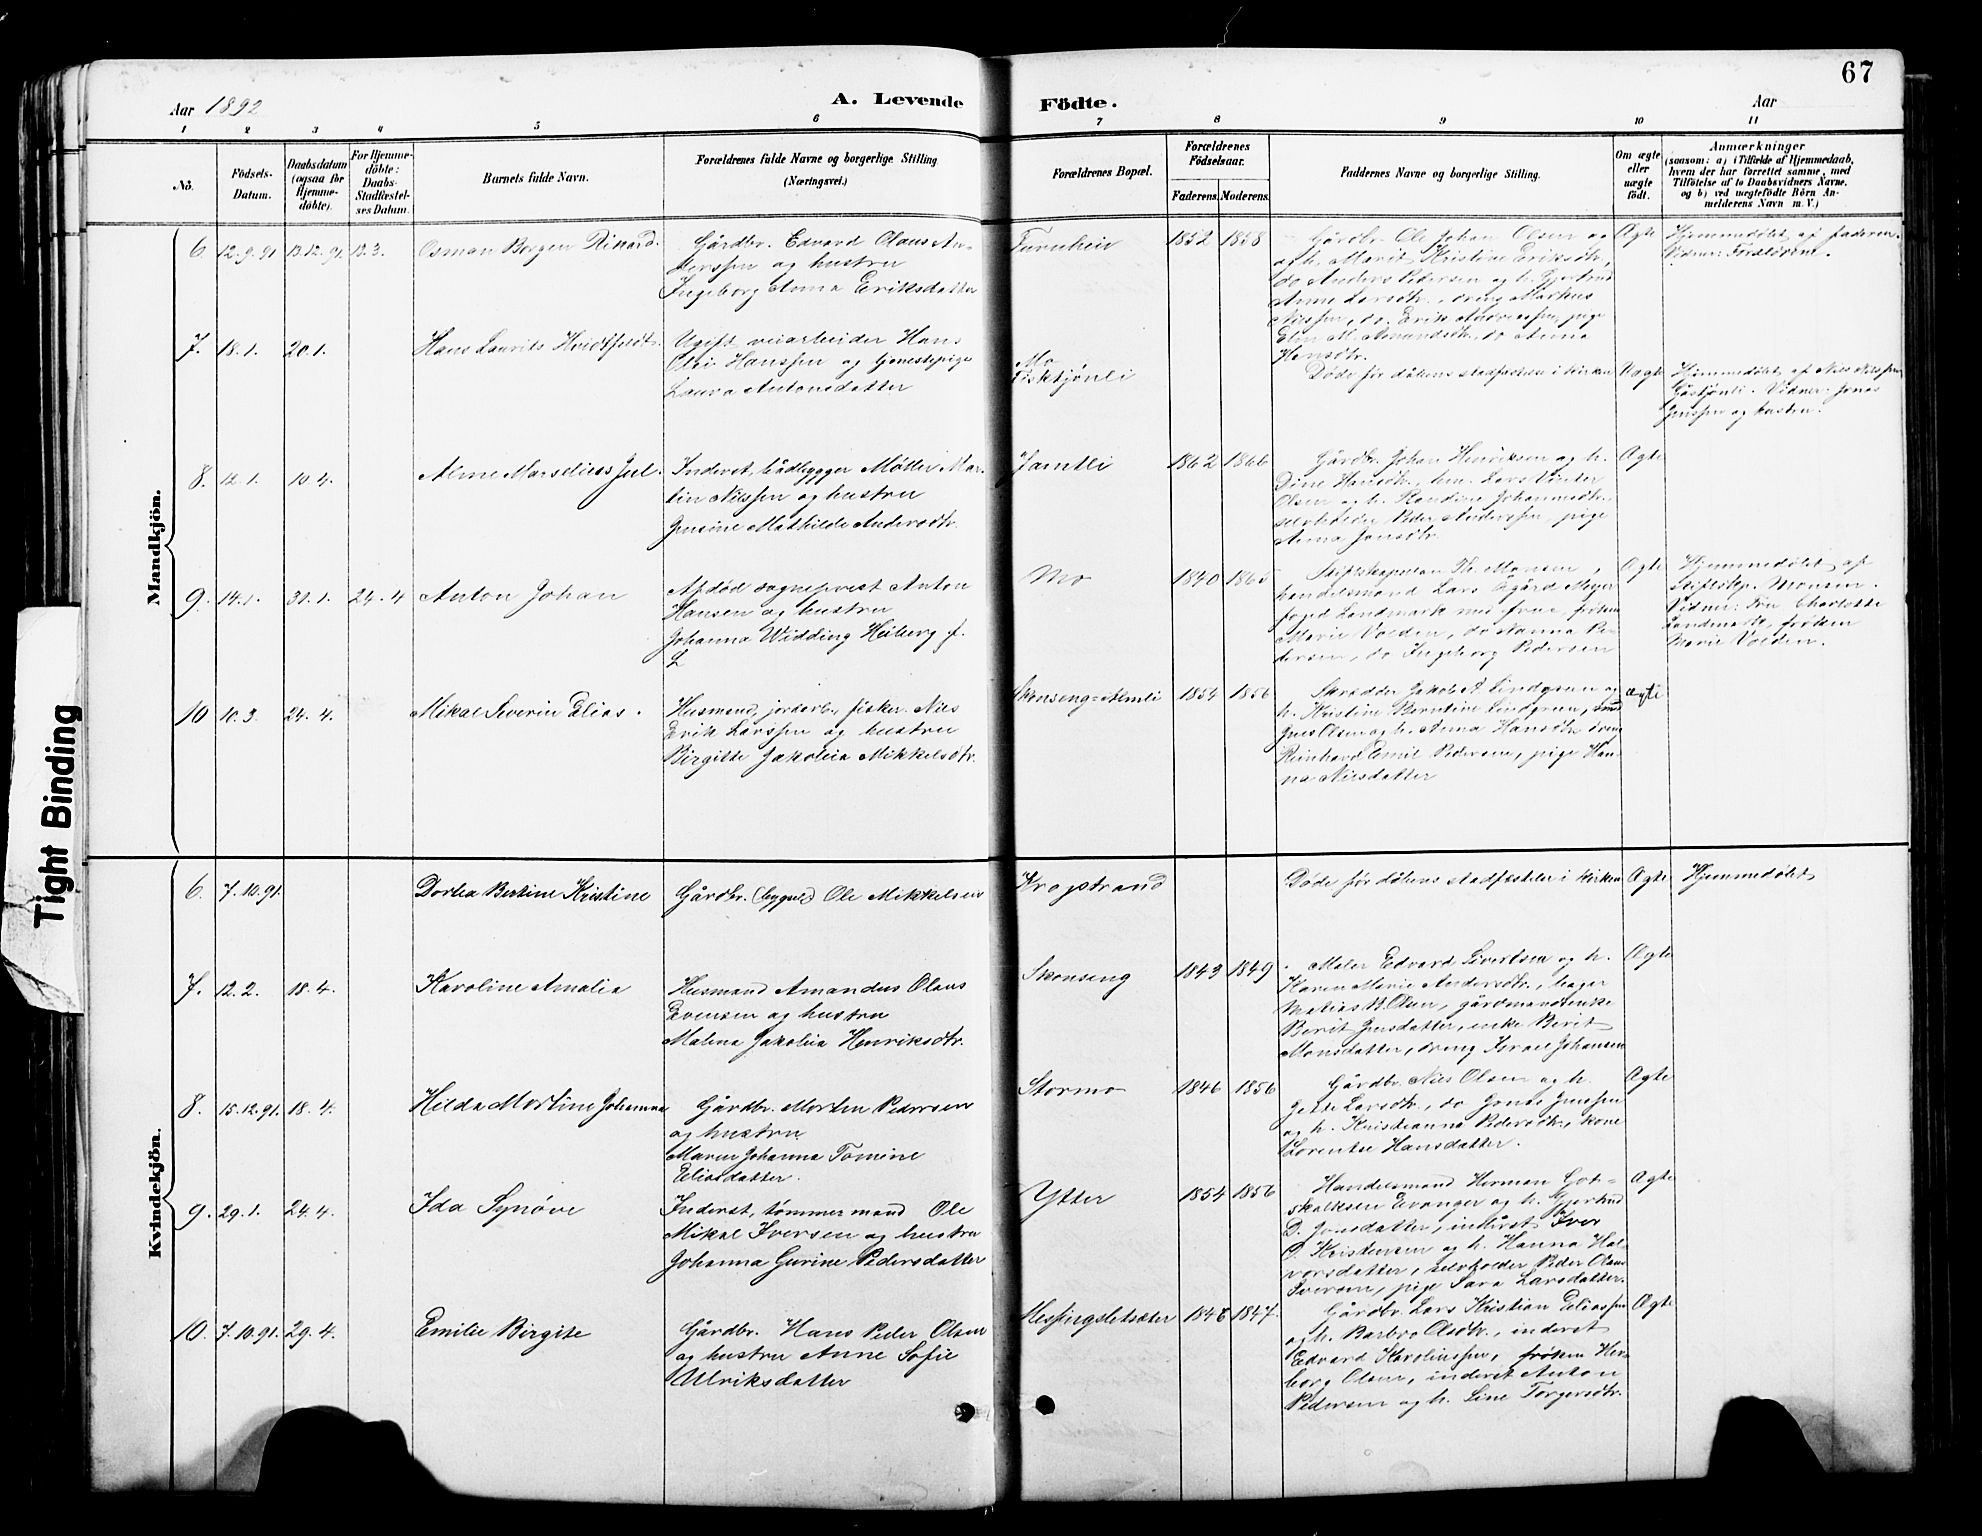 67
Aar 1892
A. Levende
Födte.
Aar
1 2 3 4 5 6 7 8 9 10 11
No.
Födsels-
Datum.
Daabsdatum
(ogsaa for
Hjemme-
döbte).
For Hjemme-
döbte:
Daabs-
Stadfæstel-
ses Datum.
Barnets fulde Navn.
Forældrenes fulde Navne og borgerlige Stilling
(Næringsvei.)
Forældrenes Bopæl.
Forældrenes
Födselsaar.
Faderens. Moderens.
Faddernes Navne og borgerlige Stilling.
Om ægte
eller
uægte
födt.
Anmærkninger
(saasom: a) i Tilfælde af Hjemmedaab,
hvem der har forrettet samme, med
Tilföielse af to Daabsvidners Navne,
og b) ved uægtefödte Börn An-
melderens Navn m. V.)
Mandkjön.
6. 12.9.91 13.12.91 13.3. Osman Borgen Rikard.
Gårdbr. Edvard Olaus An-
derssen og hustru
Ingeborg Anna Eriksdatter
1852 1858
Gårdbr. Ole Johan Olsen og
h. Marit Kristine Eriksdtr.,
do Anders Pedersen og h. Gjertrud
Anne Larsdtr., dreng Markus
Nilssen, do. Erik Andreassen, pige
Elen M. Amundsdtr., do Anna
Hansdtr.
Ægte
Hjemmedøbt af faderen.
Vidner: Forældrene.
7. 18.1. 20.1. Hans Laurits Hvidtfeldt.
Ugift veiarbeider Hans
Olai Hanssen og tjenestepige
Laura Antonsdatter
Mo
Fisktjønli
Døde før dåbens stadfæstelse i kirken
Uægte
Hjemmedøbt af Nils Nilssen
Vidner: Jonas
Jenssen og hustru.
8. 12.1. 10.4. Arne Marselius Jul.
Inderst, bådbygger Møller Mar-
tin Nilssen og hustru
Jensine Mathilde Andersdtr.
Jamtli
1862 1866
Gårdbr. Johan Henriksen og h.
Dine Hansdtr., hm. Lars
Olsen og h. Johannesdtr.,
selveholder Peder Anderssen, pige
Anna Jonsdtr.
Ægte
9. 14.1. 31.1. 24.4 Anton Johan
Afdød sogneprest Anton
Hansen og hustru
Johanna Widding Heiberg f.
L
Mo
1840 1865
Stiftskapellan Th. Monsen,
handelsmand Lars Ågård Meyer
foged Landmark med frue, frøken
Marie Volden, do Hanna Pe-
dersen, do Ingeborg Pedersen
Ægte
Hjemmedøbt af
Stiftskap. Monsen.
Vidner: Fru Charlotte
Landmark, frøken
Marie Volden.
10 10.3. 24.4. Mikal Severin Elias.
Husmand, jordarb., fisker Nils
Erik Larssen og hustru
Birgitte Jakobia Mikkelsdtr.
Skonseng=Almli
1854 1856
Skrædder Jakob A. Lindgren og
h. Kristine Berntine Lindgren,
Jens Olsen og h. Anna Hansdtr. dreng
Reinhard Emil Pedersen, pige Han-
na Nilsdatter
ægte
Kvindekjön.
6. 7.10.91. Dortea Bertine Kristine
Gårdbr. (bygsel) Ole Mikkelsen
Krogstrand
Døde før dåbens stadfæstelse i kirken
Ægte
Hjemmedøbt
7. 12.2. 18.4. Karoline Amalia
Husmand Amandus Olaus
Evensen og hustru
Malena Jakobia Henriksdtr.
Skonseng
1843 1849
Maler Edvard Sivertsen og h.
Karen Marie Andersdtr., bager
Matias H. Olsen, gårdmandsenke
Berit Jensdatter, enke Berit
Monsdatter, dreng Israel Johansen
Ægte
8. 15.12.91. 18.4. Hilda Mortine Johanna
Gårdbr. Morten Pedersen
og hustru
Maren Johanna Tomine
Eliasdatter.
Stormo
1846 1856
Gårdbr. Nils Olsen og h.
Larsdtr., do Jonas Jenssen
og h. Kristianna Pedersdtr., kone
Lorentse Hansdatter.
Ægte
9. 29.1. 24.4. Ida Synøve
Inderst, tømmermand Ole
Mikal Iversen og hustru
Johanna Gurine Pedersdatter
Ytter
1854 1856
Handelsmand Herman Got-
skalksen Evanger og h. Gjertrud
D. Jonsdatter, inderst Iver
O. Kristensen og h. Hanna Hal-
vorsdatter, selvholder Peder Olaus
Iversen, pige Sara Larsdatter.
Ægte
10. 7.10.91. 29.4. Emilie Birgite
Gårdbr. Hans Peder Olsen
og hustru Anne Sofie
Ulriksdatter
Messingsletsæter
1848 1847.
Gårdbr. Lars Kristian Eliassen
og h. Barbro Olsdtr., inderst
Edvard Karolinssen, frøken Her-
borg Olsen, inderst Anton
Pedersen og h. Line Torgersdtr.
Ægte
Tight Binding